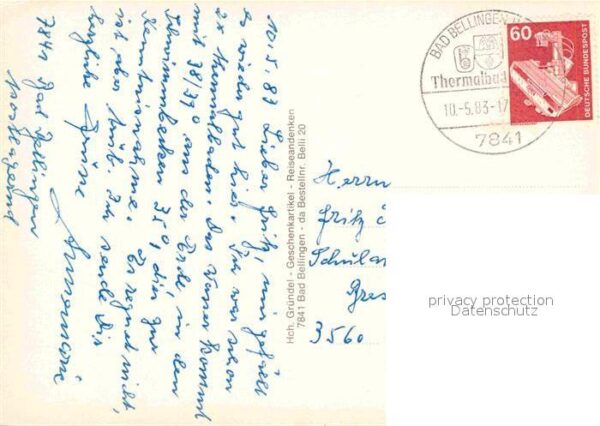 10.5.83 Lieber Fritz, mir gefällt
es wieder gut hier. Ich war schon
2x Thermalbaden. Das Wasser kommt
mit 38/39° aus der Erde, in den
Schwimmbecken 35°, die zur
ist aber trüb. Ich sende Dir
herzliche Grüsse
Annemarie
7841 Bad Bellingen
Hch. Gründel - Geschenkartikel - Reiseandenken
7841 Bad Bellingen - da Bestellnr. Belli 20
BAD BELLINGEN
Thermalbad
10.-5.83-17
7841
60
DEUTSCHE BUNDESPOST
Herrn
Fritz
Schul
3560
privacy protection
Datenschutz